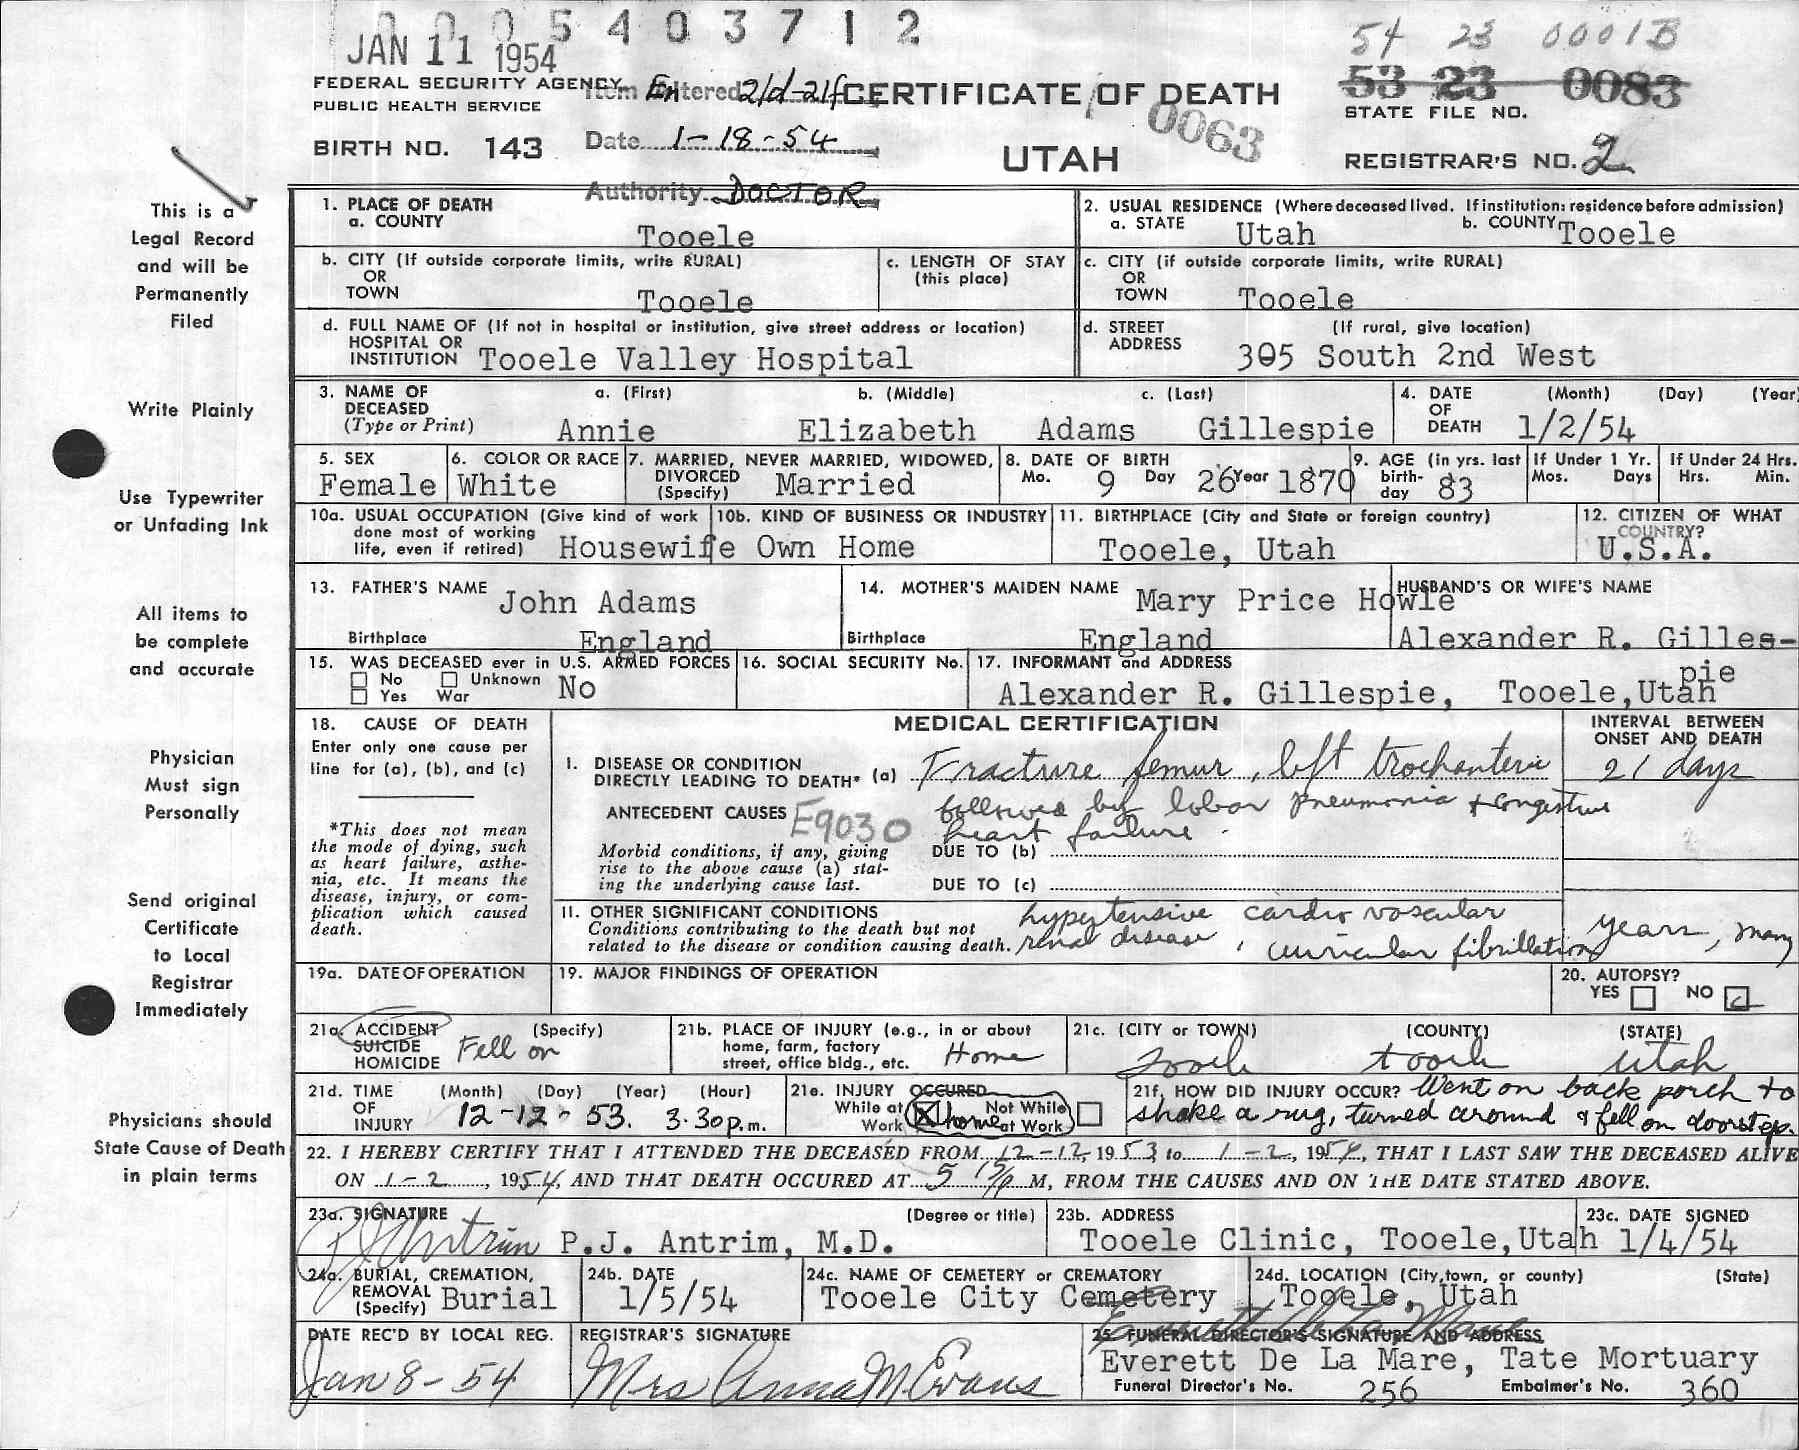 0 0 0 5 4 0 3 7 1 2
JAN 11 1954
54 23 0001B
53 23 0083
FEDERAL SECURITY AGENCY
PUBLIC HEALTH SERVICE
Item Entered 21d-21f
CERTIFICATE OF DEATH
0063
STATE FILE NO.
BIRTH NO. 143
Date 1-18-54
UTAH
REGISTRAR'S NO. 2
Authority DOCTOR
This is a
Legal Record
and will be
Permanently
Filed
Write Plainly
Use Typewriter
or Unfading Ink
All items to
be complete
and accurate
Physician
Must sign
Personally
Send original
Certificate
to Local
Registrar
Immediately
Physicians should
State Cause of Death
in plain terms
1. PLACE OF DEATH
a. COUNTY Tooele
2. USUAL RESIDENCE (Where deceased lived. If institution: residence before admission)
a. STATE Utah b. COUNTY Tooele
b. CITY (If outside corporate limits, write RURAL)
OR
TOWN Tooele
c. LENGTH OF STAY
(this place)
c. CITY (if outside corporate limits, write RURAL)
OR
TOWN Tooele
d. FULL NAME OF (If not in hospital or institution, give street address or location)
HOSPITAL OR
INSTITUTION Tooele Valley Hospital
d. STREET (If rural, give location)
ADDRESS 305 South 2nd West
3. NAME OF a. (First) b. (Middle) c. (Last)
DECEASED
(Type or Print) Annie Elizabeth Adams Gillespie
4. DATE (Month) (Day) (Year)
OF
DEATH 1/2/54
5. SEX
Female
6. COLOR OR RACE
White
7. MARRIED, NEVER MARRIED, WIDOWED,
DIVORCED
(Specify) Married
8. DATE OF BIRTH
Mo. 9 Day 26 Year 1870
9. AGE (in yrs. last
birth-
day 83
If Under 1 Yr.
Mos. Days
If Under 24 Hrs.
Hrs. Min.
10a. USUAL OCCUPATION (Give kind of work
done most of working
life, even if retired) Housewife
10b. KIND OF BUSINESS OR INDUSTRY
Own Home
11. BIRTHPLACE (City and State or foreign country)
Tooele, Utah
12. CITIZEN OF WHAT
COUNTRY?
U.S.A.
13. FATHER'S NAME John Adams
Birthplace England
14. MOTHER'S MAIDEN NAME Mary Price Howle
Birthplace England
HUSBAND'S OR WIFE'S NAME
Alexander R. Gilles-
pie
15. WAS DECEASED ever in U.S. ARMED FORCES
No Unknown No
Yes War
16. SOCIAL SECURITY No.
17. INFORMANT and ADDRESS
Alexander R. Gillespie, Tooele,Utah
18. CAUSE OF DEATH
Enter only one cause per
line for (a), (b), and (c)
*This does not mean
the mode of dying, such
as heart failure, asthe-
nia, etc. It means the
disease, injury, or com-
plication which caused
death.
MEDICAL CERTIFICATION
INTERVAL BETWEEN
ONSET AND DEATH
I. DISEASE OR CONDITION
DIRECTLY LEADING TO DEATH* (a) Fracture femur, left trochanteric 21 days
ANTECEDENT CAUSES E9030 followed by lobar pneumonia & congestive
heart failure.
Morbid conditions, if any, giving
rise to the above cause (a) stat-
ing the underlying cause last.
DUE TO (b)
DUE TO (c)
II. OTHER SIGNIFICANT CONDITIONS hypertensive cardio vascular
Conditions contributing to the death but not
related to the disease or condition causing death. renal disease, auricular fibrillation years, many
19a. DATE OF OPERATION
19. MAJOR FINDINGS OF OPERATION
20. AUTOPSY?
YES NO
21a. ACCIDENT (Specify)
SUICIDE
HOMICIDE Fell on
21b. PLACE OF INJURY (e.g., in or about
home, farm, factory
street, office bldg., etc. Home
21c. (CITY or TOWN) (COUNTY) (STATE)
Tooele Tooele Utah
21d. TIME (Month) (Day) (Year) (Hour)
OF
INJURY 12-12-53. 3:30 p.m.
21e. INJURY OCCURED
While at Work home Not While at Work
21f. HOW DID INJURY OCCUR? Went on back porch to
shake a rug, turned around & fell on doorstep.
22. I HEREBY CERTIFY THAT I ATTENDED THE DECEASED FROM 12-12, 1953, to 1-2, 1954, THAT I LAST SAW THE DECEASED ALIVE
ON 1-2, 1954, AND THAT DEATH OCCURED AT 5 15 p M, FROM THE CAUSES AND ON THE DATE STATED ABOVE.
23a. SIGNATURE (Degree or title)
PJ Antrim P.J. Antrim, M.D.
23b. ADDRESS
Tooele Clinic, Tooele,Utah
23c. DATE SIGNED
1/4/54
24a. BURIAL, CREMATION,
REMOVAL
(Specify) Burial
24b. DATE
1/5/54
24c. NAME OF CEMETERY or CREMATORY
Tooele City Cemetery
24d. LOCATION (City, town, or county) (State)
Tooele, Utah
DATE REC'D BY LOCAL REG.
Jan 8-54
REGISTRAR'S SIGNATURE
Mrs Anna M. Evans
Everett De La Mare
25. FUNERAL DIRECTOR'S SIGNATURE AND ADDRESS
Everett De La Mare, Tate Mortuary
Funeral Director's No. 256 Embalmer's No. 360